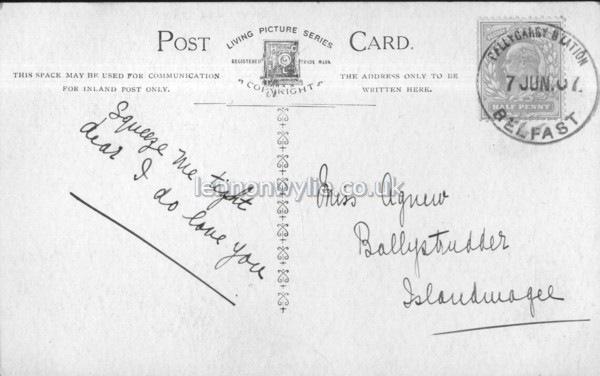 POST CARD.
LIVING PICTURE SERIES
REGISTERED TRADE MARK
COPYRIGHT
THIS SPACE MAY BE USED FOR COMMUNICATION
FOR INLAND POST ONLY.
THE ADDRESS ONLY TO BE
WRITTEN HERE.
HALF PENNY
BALLYCARRY STATION
7 JUN. 07
BELFAST
Squeeze me tight
dear I do love you
lennonwylie.co.uk
Miss Agnew
Ballystrudder
Islandmagee